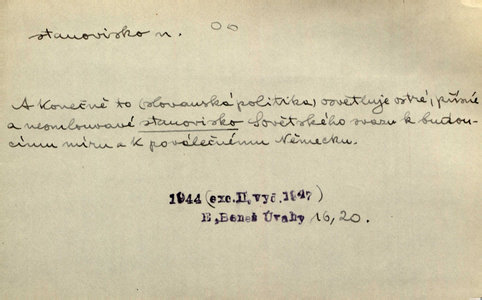 stanovisko n. oo
A konečně to (slovanská politika) osvětluje ostré, přísné
a neomlouvavé stanovisko Sovětského svazu k budou-
címu míru a k poválečnému Německu.
1944 (exc. II, vyč. 1947)
E. Beneš Úvahy 16, 20.